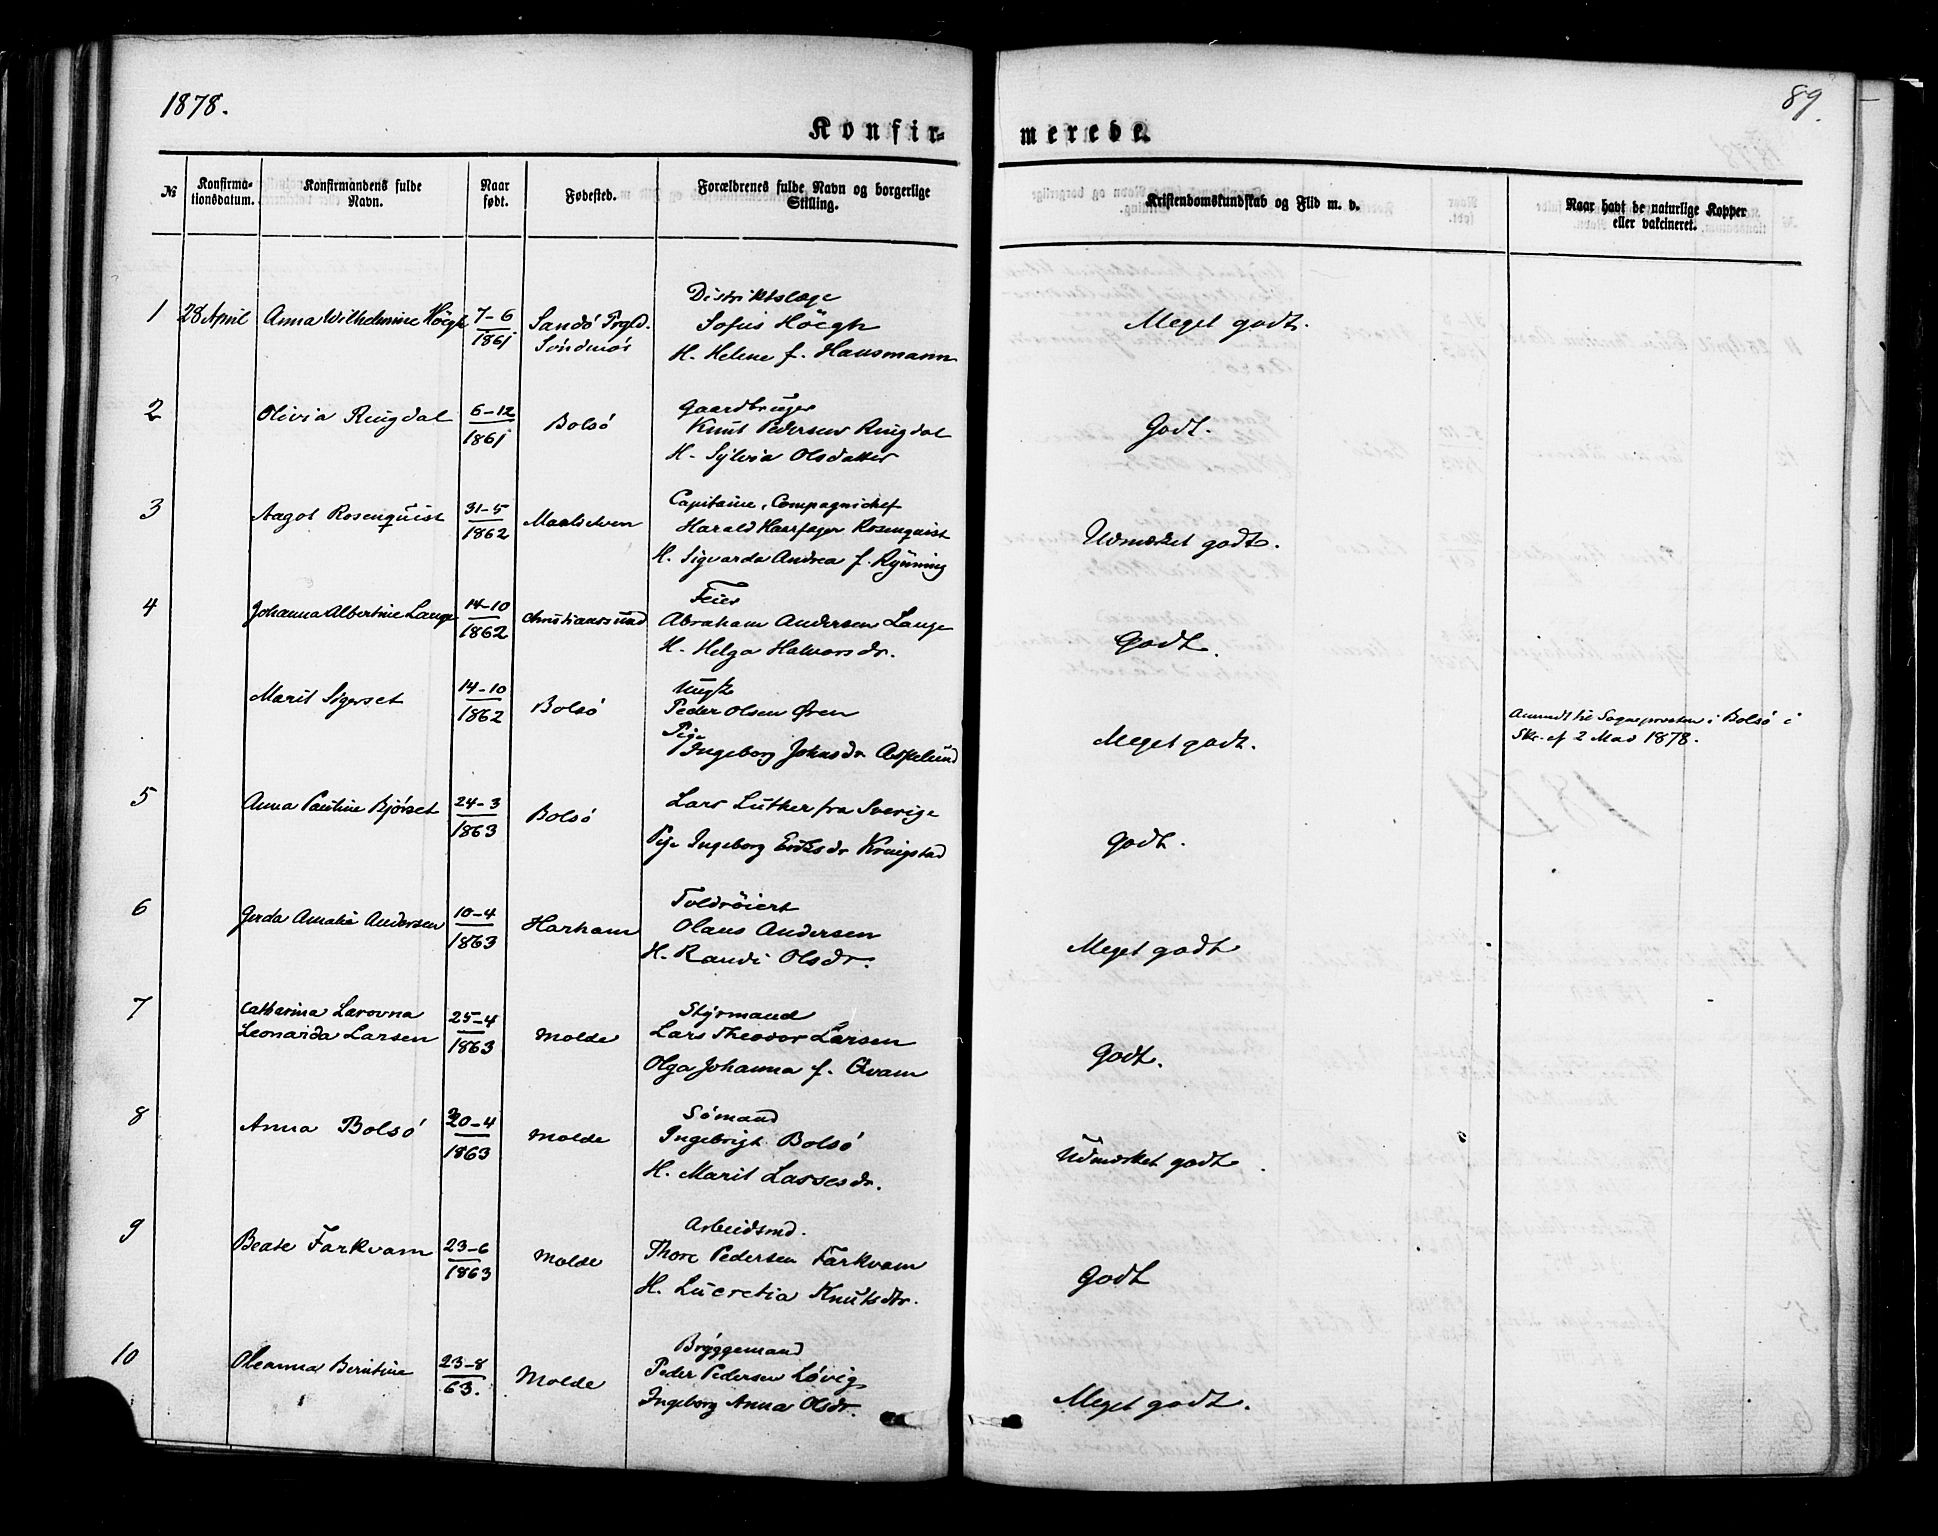 1878.
89.
Konfir- merede.
№ Konfirma-tionsdatum. Konfirmandens fulde Navn. Naar født. Fødested. Forældrenes fulde Navn og borgerlige Stilling. Kristendomskundskab og Flid m. v. Naar havt de naturlige Kopper eller vakcineret.
Distriktslæge
1 28 April Anna Wilhelmine Höegh 7-6 1861 Sandö Prgld. Söndmör Sofus Höegh Meget godt.
H. Helene f. Hausmann
Gaardbruger
2 Olivia Ringdal 6-12 1861 Bolsö Knut Pedersen Ringdal Godt.
H. Sylvia Olsdatter
Capitaine, Compagnichef
3 Aagot Rosenquist 31-5 1862 Maalselven Harald Haarfager Rosenquist Udmærket godt.
H. Sigvarda Andrea f. Rynning
Feier
4 Johanna Albertine Lange 14-10 1862 Christianssund Abraham Andersen Lange Godt.
H. Helga Halvorsdr.
Ungk
Marit Sigerset 14-10 1862 Bolsö Peder Olsen Øren Meget godt.
Pige Ingeborg Johnsdr Aspelund
Anmeldt til Sognepresten i Bolsö i
Skr. af 2 Mai 1878.
5 Anna Pauline Bjørset 24-3 1863 Bolsö Lars Luther fra Sverige godt.
Pige Ingeborg Eriksdr Kringstad
Toldröiert
6 Gerda Amalie Andersen 10-4 1863 Harham Olaus Andersen Meget godt
H. Randi Olsdr.
Styrmand
7 Catharina Lovovna Leonarda Larsen 25-4 1863 Molde Lars Theodor Larsen Godt.
Olga Johanna f. Qvam
Sömand
8 Anna Bolsö 20-4 1863 Molde Ingebrigt Bolsö Udmærket godt.
H. Marit Lassesdr.
Arbeidsmd.
9 Beate Farkvam 23-6 1863 Molde Thore Pedersen Farkvam Godt
H. Lucretia Knutsdtr.
Bryggemand
10 Oleanna Berntine 23-8 63. Molde Peder Pedersen Løvig Meget godt.
Ingeborg Anna Olsdr.